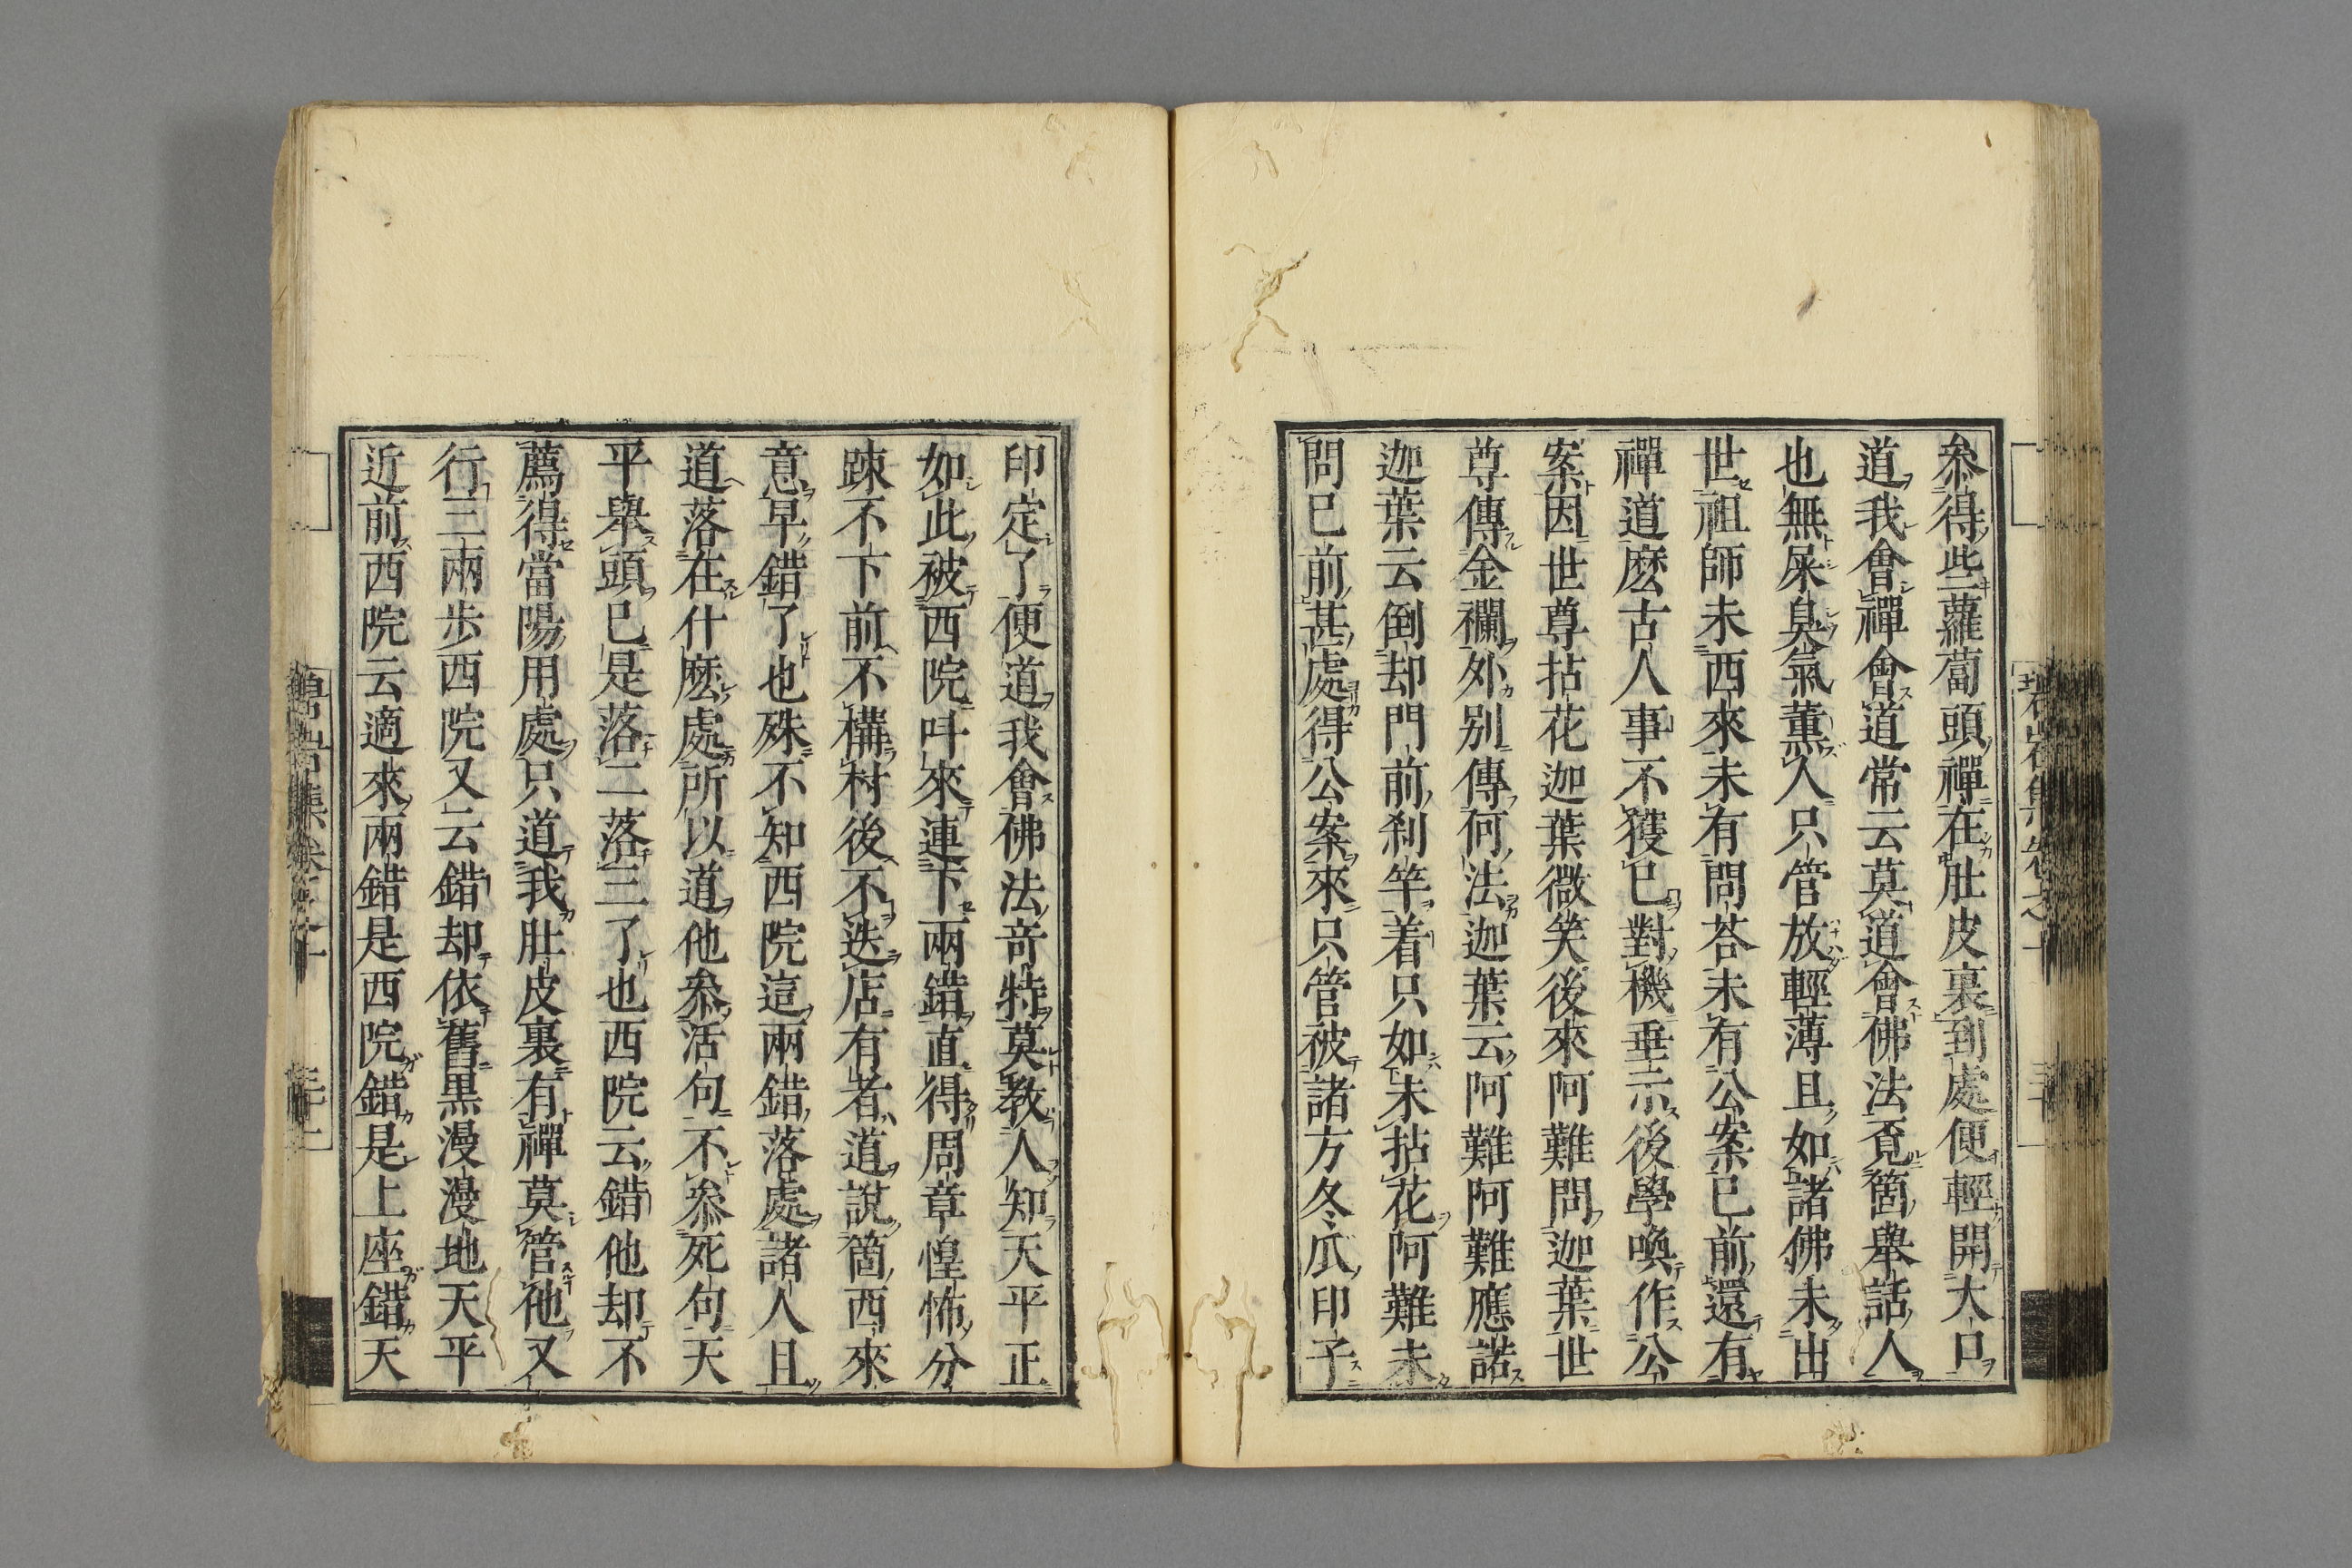 叅得些蘿蔔頭禪在肚皮裏到處便輕開大口
道我會禪會道常云莫道會佛法覓箇舉話人
也無屎臭氣薫人只管放輕薄且如諸佛未出
世祖師未西來未有問荅未有公案已前還有
禪道麽古人事不獲已對機垂示後學喚作公
案因世尊拈花迦葉微笑後來阿難問迦葉世
尊傳金襴外别傳何法迦葉云阿難阿難應諾
迦葉云倒却門前刹竿着只如未拈花阿難未
問已前甚處得公案來只管被諸方冬瓜印子
印定了便道我會佛法竒特莫教人知天平正
如此被西院呌來連下兩錯直得周章惶怖分
踈不下前不構村後不迭店有者道說箇西來
意早錯了也殊不知西院這兩錯落處諸人且
道落在什麽處所以道他叅活句不叅死句天
平舉頭已是落二落三了也西院云錯他却不
薦得當陽用處只道我肚皮裏有禪莫管他又
行三兩步西院又云錯却依舊黒漫漫地天平
近前西院云適來兩錯是西院錯是上座錯天